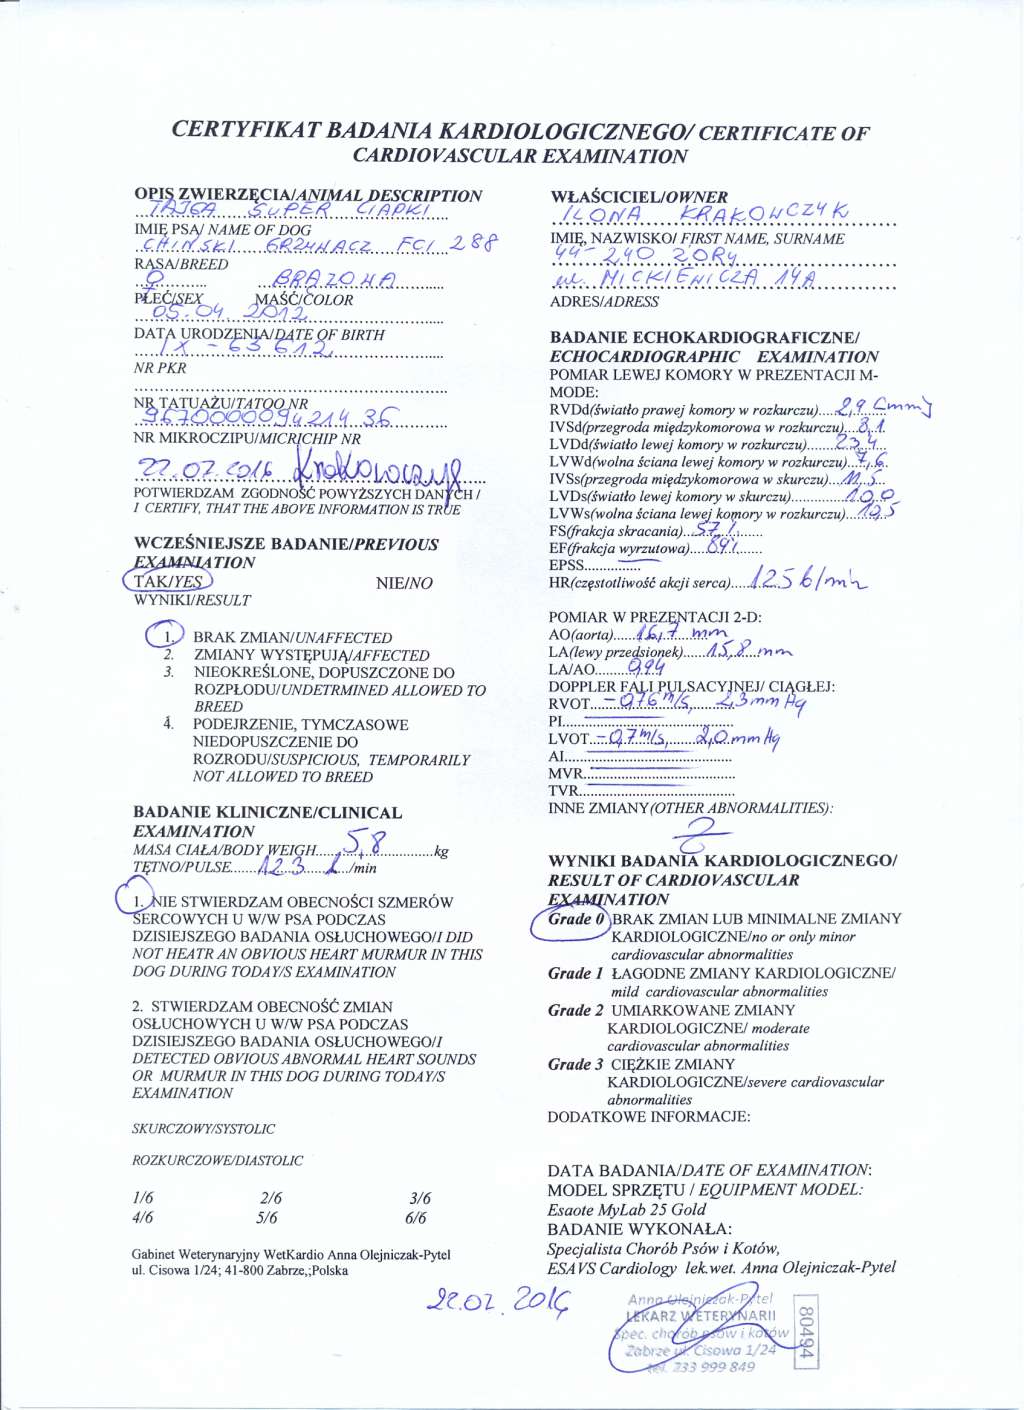 CERTYFIKAT BADANIA KARDIOLOGICZNEGO/ CERTIFICATE OF
CARDIOVASCULAR EXAMINATION
OPIS ZWIERZĘCIA/ANIMAL DESCRIPTION
TAJGA SUPER CIAPKI
IMIĘ PSA/ NAME OF DOG
CHIŃSKI GRZYWACZ FCI 288
RASA/BREED
♀ BRĄZOWA
PŁEĆ/SEX MAŚĆ/COLOR
05.04.2012
DATA URODZENIA/DATE OF BIRTH
IX - 63612
NR PKR
NR TATUAŻU/TATOO NR
967000009421436
NR MIKROCZIPU/MICRICHIP NR
22.07.2016 Krakowczyk
POTWIERDZAM ZGODNOŚĆ POWYŻSZYCH DANYCH /
I CERTIFY, THAT THE ABOVE INFORMATION IS TRUE
WCZEŚNIEJSZE BADANIE/PREVIOUS
EXAMNIATION
TAK/YES NIE/NO
WYNIKI/RESULT
1. BRAK ZMIAN/UNAFFECTED
2. ZMIANY WYSTĘPUJĄ/AFFECTED
3. NIEOKREŚLONE, DOPUSZCZONE DO
ROZPŁODU/UNDETRMINED ALLOWED TO
BREED
4. PODEJRZENIE, TYMCZASOWE
NIEDOPUSZCZENIE DO
ROZRODU/SUSPICIOUS, TEMPORARILY
NOT ALLOWED TO BREED
BADANIE KLINICZNE/CLINICAL
EXAMINATION
MASA CIAŁA/BODY WEIGH......5,8......kg
TĘTNO/PULSE......123....../min
1. NIE STWIERDZAM OBECNOŚCI SZMERÓW
SERCOWYCH U W/W PSA PODCZAS
DZISIEJSZEGO BADANIA OSŁUCHOWEGO/I DID
NOT HEATR AN OBVIOUS HEART MURMUR IN THIS
DOG DURING TODAY/S EXAMINATION
2. STWIERDZAM OBECNOŚĆ ZMIAN
OSŁUCHOWYCH U W/W PSA PODCZAS
DZISIEJSZEGO BADANIA OSŁUCHOWEGO/I
DETECTED OBVIOUS ABNORMAL HEART SOUNDS
OR MURMUR IN THIS DOG DURING TODAY/S
EXAMINATION
SKURCZOWY/SYSTOLIC
ROZKURCZOWE/DIASTOLIC
1/6 2/6 3/6
4/6 5/6 6/6
Gabinet Weterynaryjny WetKardio Anna Olejniczak-Pytel
ul. Cisowa 1/24; 41-800 Zabrze,;Polska
WŁAŚCICIEL/OWNER
ILONA KRAKOWCZYK
IMIĘ, NAZWISKO/ FIRST NAME, SURNAME
44-240 ŻORY
ul. MICKIEWICZA 14A
ADRES/ADRESS
BADANIE ECHOKARDIOGRAFICZNE/
ECHOCARDIOGRAPHIC EXAMINATION
POMIAR LEWEJ KOMORY W PREZENTACJI M-
MODE:
RVDd(światło prawej komory w rozkurczu)....2,9 [mm]
IVSd(przegroda międzykomorowa w rozkurczu)....8,1
LVDd(światło lewej komory w rozkurczu)......23,4
LVWd(wolna ściana lewej komory w rozkurczu)...7,6
IVSs(przegroda międzykomorowa w skurczu)....11,5
LVDs(światło lewej komory w skurczu)......10,0
LVWs(wolna ściana lewej komory w rozkurczu)....10,5
FS(frakcja skracania)....57%
EF(frakcja wyrzutowa)....89%
EPSS...............
HR(częstotliwość akcji serca)....125 b/min
POMIAR W PREZENTACJI 2-D:
AO(aorta)......16,7 mm
LA(lewy przedsionek)......15,8 mm
LA/AO......0,94
DOPPLER FALI PULSACYJNEJ/ CIĄGŁEJ:
RVOT....-0,76 m/s, 2,3 mmHg
PI...............
LVOT....-0,7 m/s, 2,0 mmHg
AI...............
MVR...............
TVR...............
INNE ZMIANY(OTHER ABNORMALITIES):
WYNIKI BADANIA KARDIOLOGICZNEGO/
RESULT OF CARDIOVASCULAR
EXAMINATION
Grade 0 BRAK ZMIAN LUB MINIMALNE ZMIANY
KARDIOLOGICZNE/no or only minor
cardiovascular abnormalities
Grade 1 ŁAGODNE ZMIANY KARDIOLOGICZNE/
mild cardiovascular abnormalities
Grade 2 UMIARKOWANE ZMIANY
KARDIOLOGICZNE/ moderate
cardiovascular abnormalities
Grade 3 CIĘŻKIE ZMIANY
KARDIOLOGICZNE/severe cardiovascular
abnormalities
DODATKOWE INFORMACJE:
DATA BADANIA/DATE OF EXAMINATION:
MODEL SPRZĘTU / EQUIPMENT MODEL:
Esaote MyLab 25 Gold
BADANIE WYKONAŁA:
Specjalista Chorób Psów i Kotów,
ESAVS Cardiology lek.wet. Anna Olejniczak-Pytel
22.07.2016
Anna Olejniczak-Pytel
LEKARZ WETERYNARII
Spec. chorób psów i kotów
Zabrze ul. Cisowa 1/24
tel. 733 999 849
80494